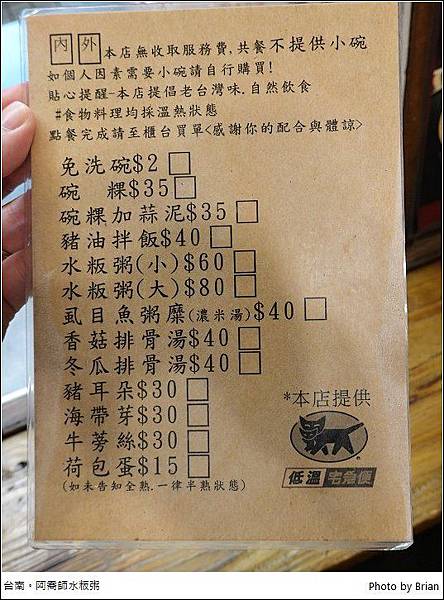 內 外 本店無收取服務費,共餐不提供小碗
如個人因素需要小碗請自行購買!
貼心提醒-本店提倡老台灣味.自然飲食
#食物料理均採溫熱狀態
點餐完成請至櫃台買單<感謝你的配合與體諒>
免洗碗$2
碗 粿$35
碗粿加蒜泥$35
豬油拌飯$40
水粄粥(小)$60
水粄粥(大)$80
虱目魚粥糜(濃米湯)$40
香菇排骨湯$40
冬瓜排骨湯$40
豬耳朵$30
海帶芽$30
牛蒡絲$30
荷包蛋$15
(如未告知全熟.一律半熟狀態)
*本店提供
低溫 宅急便
台南。阿喬師水粄粥
Photo by Brian